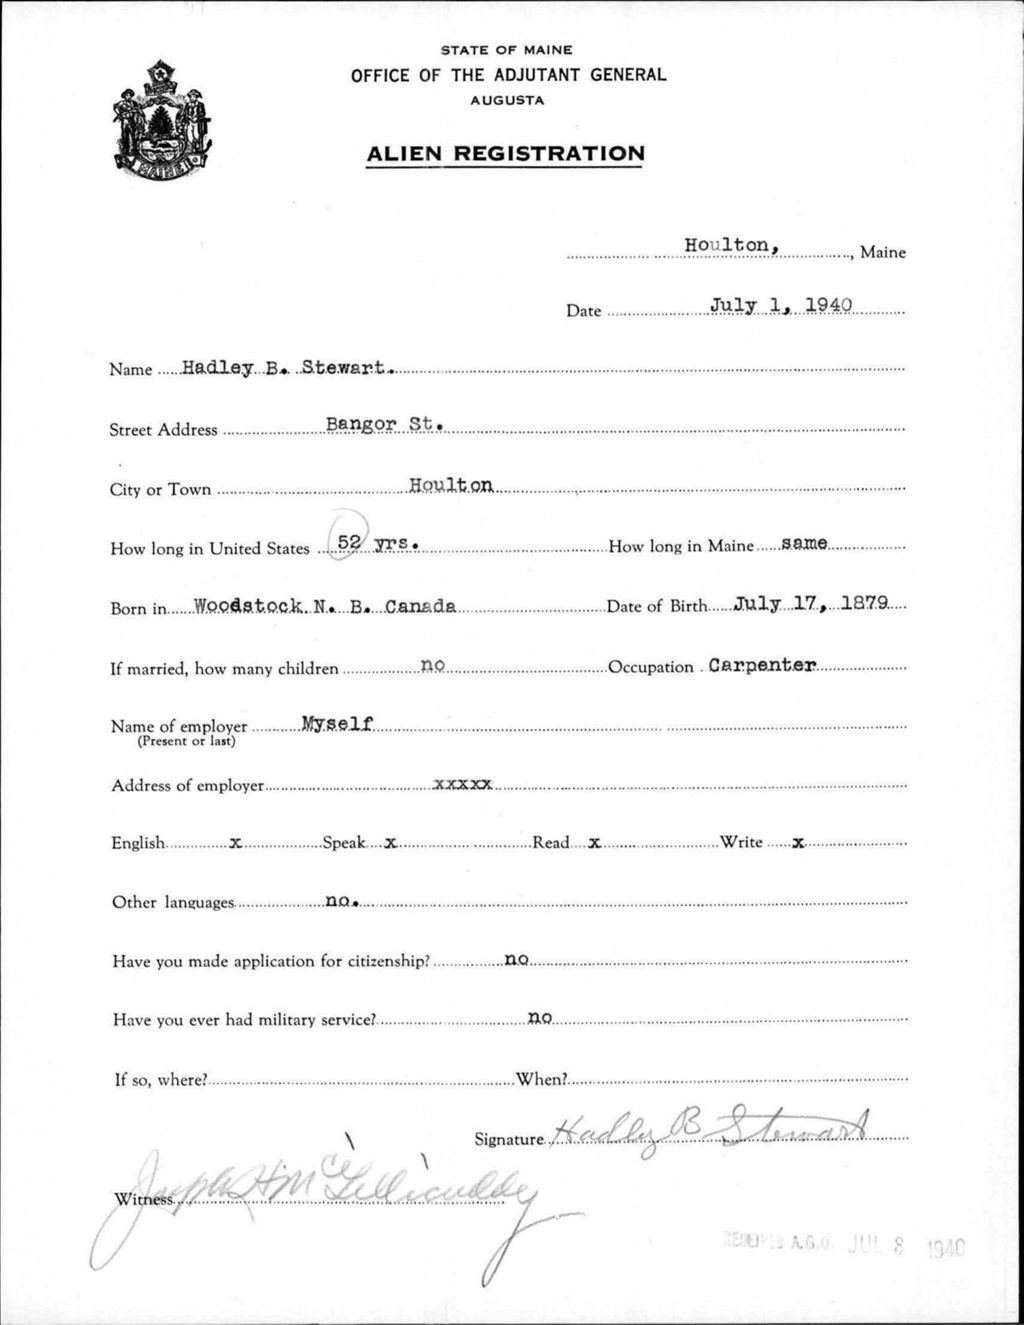 STATE OF MAINE
OFFICE OF THE ADJUTANT GENERAL
AUGUSTA
ALIEN REGISTRATION
MAINE
Houlton, , Maine
Date July 1, 1940
Name Hadley B. Stewart.
Street Address Bangor St.
City or Town Houlton
How long in United States 52 yrs. How long in Maine same
Born in Woodstock N. B. Canada Date of Birth July 17, 1879
If married, how many children no Occupation Carpenter
Name of employer Myself
(Present or last)
Address of employer xxxxx
English x Speak x Read x Write x
Other languages no.
Have you made application for citizenship? no
Have you ever had military service? no
If so, where? When?
Signature Hadley B Stewart
Witness Joseph H McGillicuddy
RECEIVED A.G.O. JUL 8 1940